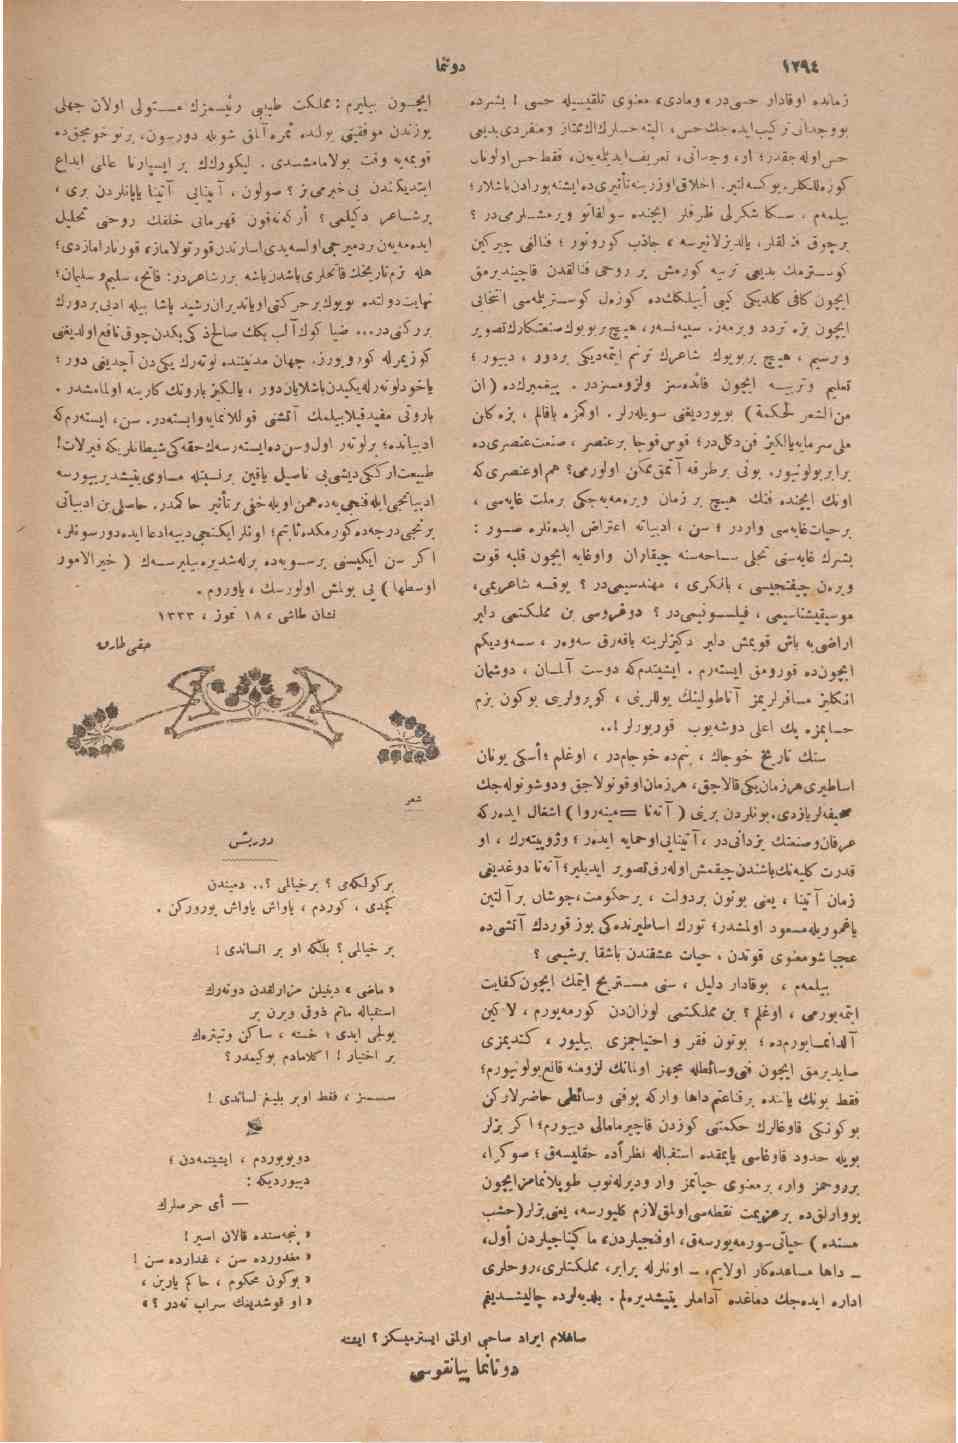 ١٢٩٤
دونما
زمانده اوقادار حسی‌در، ومادی، معنوی تلقیسیله حسی ! بشرده
بووجدانی ترکیب ایده‌جك حس، البته حسلرك اك ممتاز ومنفردی بدیعی
حس اوله‌جقدر؛ ار، وجدانی، تعریف ایدیله‌مه‌ین، فقط حس اولونان
بیلمه‌م . سکا شکرلی ظرفلر ایچنده سولفاتو ویرمشلرمی‌در ؟
برچوق فنالقلر، یالدیزلانیرسه ، جاذب کورونور ؛ فنالغی چیرکین
کوسترمك بدیعی تربیه کورمش بر روحی فنالقدن قاچیندیرمق
ایچون کافی کلدیکی کبی اییلیکكده کوزل کوستریله‌سی انتخابی
ایچون بزه تردد ویرمه‌ز. سیه‌نه‌ر، هیچ بربویوك صنعتکارك تصویر
و رسیم ، هیچ بربویوك شاعرك ترنم ایتمه‌دیکی بردور ، دییور ؛
تعلیم وتربیه ایچون فائده‌سز ولزومسزدر . پیغمبرك‌ده ( ان
من الشعر لحکمة ) بویوردیغنی سویله‌رلر . اوکمزه باقالم ، بزه کان
ملی سرمایه یالکیز فن دکل‌در؛ قوس قوجا برعنصر ، صنعت عنصری‌ده
برابر بولونیور. بونی برطرفه آتمق ممکن اولورمی؟ هم او عنصری که
اونك ایچنده فنك هیچ بر زمان ویره‌مه‌یه‌جکی برملت غایه‌سی ،
برحیات غایه‌سی واردر ؛ سن ، ادبیاته اعتراض ایده‌نلره صور :
بشرك غایه‌سنی تجلی ساحه‌سنه چیقاران واوغایه ایچون قلبه قوت
ویره‌ن چیفتجیسی ، بانکری ، مهندسیمی‌در ؟ یوقسه شاعریمی،
موسیقیشناسیمی ، فیلسوفیمی‌در ؟ دوغروسی بن مملکتمی دلبر
اراضی‌یه باش قویمش دلبر دکیزلرینه باقه‌رق سه‌وه‌ر ، سه‌ودیکم
ایچون‌ده قورومق ایسته‌رم . ایشیتدم‌که دوست آلمان ، دوشمان
انکلیز مسافرلریمز آناطولینك یوللرینی ، کوپرولرینی بوکون بزم
حسابمزه پك اعلی دوشه‌یوب قورییورلر !..
سنك تاریخ خوجاك ، بنم‌ده خوجام‌در ، اوغلم ؛ أسکی یونان
اساطیری هرزمان یکی قالاجق، هرزمان اوقونولاجق ودوشونوله‌جك
صحیفه‌لر یازدی. بونلردن برینی ( آته‌نا = مینه‌روا ) اشغال ایده‌رکه
عرفان وصنعتك یزدانی‌در ، آتینایی او حمایه ایده‌ر ؛ وزوپیته‌رك ، او
قدرت کلیه‌نك باشندن چیقمش اوله‌رق تصویر ایدیلیر؛ آته‌نا دوغدیغی
زمان آتینا ، یعنی بوتون بردولت ، برحکومت، جوشان برآلتین
یاغموریله مسعود اولمشدر؛ تورك اساطیرنده‌کی بوز قوردك آتشی‌ده
عجبا شو معنوی قوتدن ، حیات عشقندن باشقا برشیمی ؟
بیلمه‌م ، بوقادار دلیل ، سنی مستریح ایتمك ایچون کفایت
ایتمه‌یورمی ، اوغلم ؟ بن مملکتمی لوزان‌دن کورمه‌یورم ، لاکین
آلدانمایورم‌ده ؛ بوتون فقر و احتیاجمزی بیلیور ، کندیمزی
صایدیرمق ایچون فنی وسائطله مجهز اولمانك لزومنه قانع بولونیورم؛
فقط بونك یاننده برقناعتم داها وارکه بوفنی وسائطی حاضرلارکن
بوکونکی قاوغالرك حکمتنی کوزدن قاچیرمامالی دییورم؛ اکر بزلر
بویله حدود قاوغاسی یاپمقده استقباله نظراً ده حقلیسه‌ق ؛ صوکرا،
برروحمز وار، برمعنوی حیاتمز وار ودیرله‌نوب طوپلانماعز ایچون
بووارلق‌ده برعزیمت نقطه‌سی اولمق لازم کلیورسه، یعنی بزلر (خشب
مسنده ) حیاتی سورمه‌یورسه‌ق، اوفنجیلردن، ماکیناجیلردن أول،
ـ داها مساعده‌کار اولایم، ـ اونلرله برابر، مملکتلری، روحلری
اداره ایده‌جك دماغده آداملر یتیشدیره‌لم . بلدیه‌لرده چالیشدیغم
ایچون بیلیرم : مملکت طبیبی رئیسمزك مستولی اولان جهلی
یوزندن موفقیتی یولنده ثمره آلمق شویله دورسون، برنوخومجق‌ده
قویمه‌یه وقت بولامامشدی . لیکورك‌ك بر ایسپارتا عالمی ابداع
ایتدیکندن بی خبرمی‌یز ؟ صولون ، آتینایی آتینا یاپانلردن بری ،
برشاعر دکیلمی ؟ أرکه‌نه‌قون قهرمانی خلقك روحی تحلیل
ایده‌مه‌ین بردمیرجی اولسه‌یدی اسارتدن قورتولاماز، قورتارامازدی؛
هله بزم تاریخك فاتحلری باشدن باشه بررشاعردر: فاتح، سلیم وسلیمان؛
نهایت دولتده بویوك برحرکتی اویاندیران رشید پاشا بیله ادبی بردورك
بررکنی‌در... ضیا کوك آلب بکك صالح ذکی بکدن چوق نافع اولدیغنی
کوزیمزله کورویورز. جهان مدنیتنده لوته‌رك یکی‌دن آچدیغی دور ؛
یاخود لوته‌رله یکیدن باشلایان دور ، یالکیز باروتك کارینه اولمامشدر .
باروتی مفید قیلابیلمك آتشنی قوللانمایه وابسته‌در. سن، ایسته‌رم که
ادبیاتده؛ برلوته‌ر اول وسن‌ده ایسته‌رسه‌ك حقه‌کی شیطانلریکه فیرلات!
ادبیاتجی ایله فنجی‌یه‌ده همن اویله خفی برتأثیر حاکمدر. حاصلی بن ادبیاتی
برنجی درجه‌ده کورمکده ثابتم؛ اونلر ایکنجی دییه ادعا ایده دورسونلر ،
اکر سن ایکیسنی برسویه‌ده برله‌شدیره‌بیلیرسه‌ك ( خیر الامور
اوسطها ) یی بولمش اولورسك ، یاوروم .
نشان طاشی ، ١٨ تموز ، ١٣٣٣
حقی طارق
شعر
درویش
برکولکه‌می ؟ برخیالمی ؟ .. دمیندن
کچدی ، کوردم ، یاواش یاواش یورورکن .
بر خیالمی ؟ بلکه او بر انساندی !
« ماضی » دینیلن مزارلقدن دونه‌رك
استقباله ماتم ذوقی ویرن بر
یولجی ایدی ؛ خسته ، ساکن وتیتره‌ك
بر اختیار ! اکلامادم بوکیمدر ؟
سسسز ، فقط اوبر بلیغ لساندی !
دویویوردم ، ایشیتمه‌دن ؛
دییوردیکه :
— أی حرصلرك
« پنجه‌سنده قالان اسیر !
« مغدورده سن ، غدارده سن !
« بوکون محکوم ، حاکم یارین ،
« او قوشدیغك سراب نه‌در ؟ »
صاغلام ایراد صاحبی اولمق ایسترمیسکز ؟ ایشته
دونانما پیانقوسی